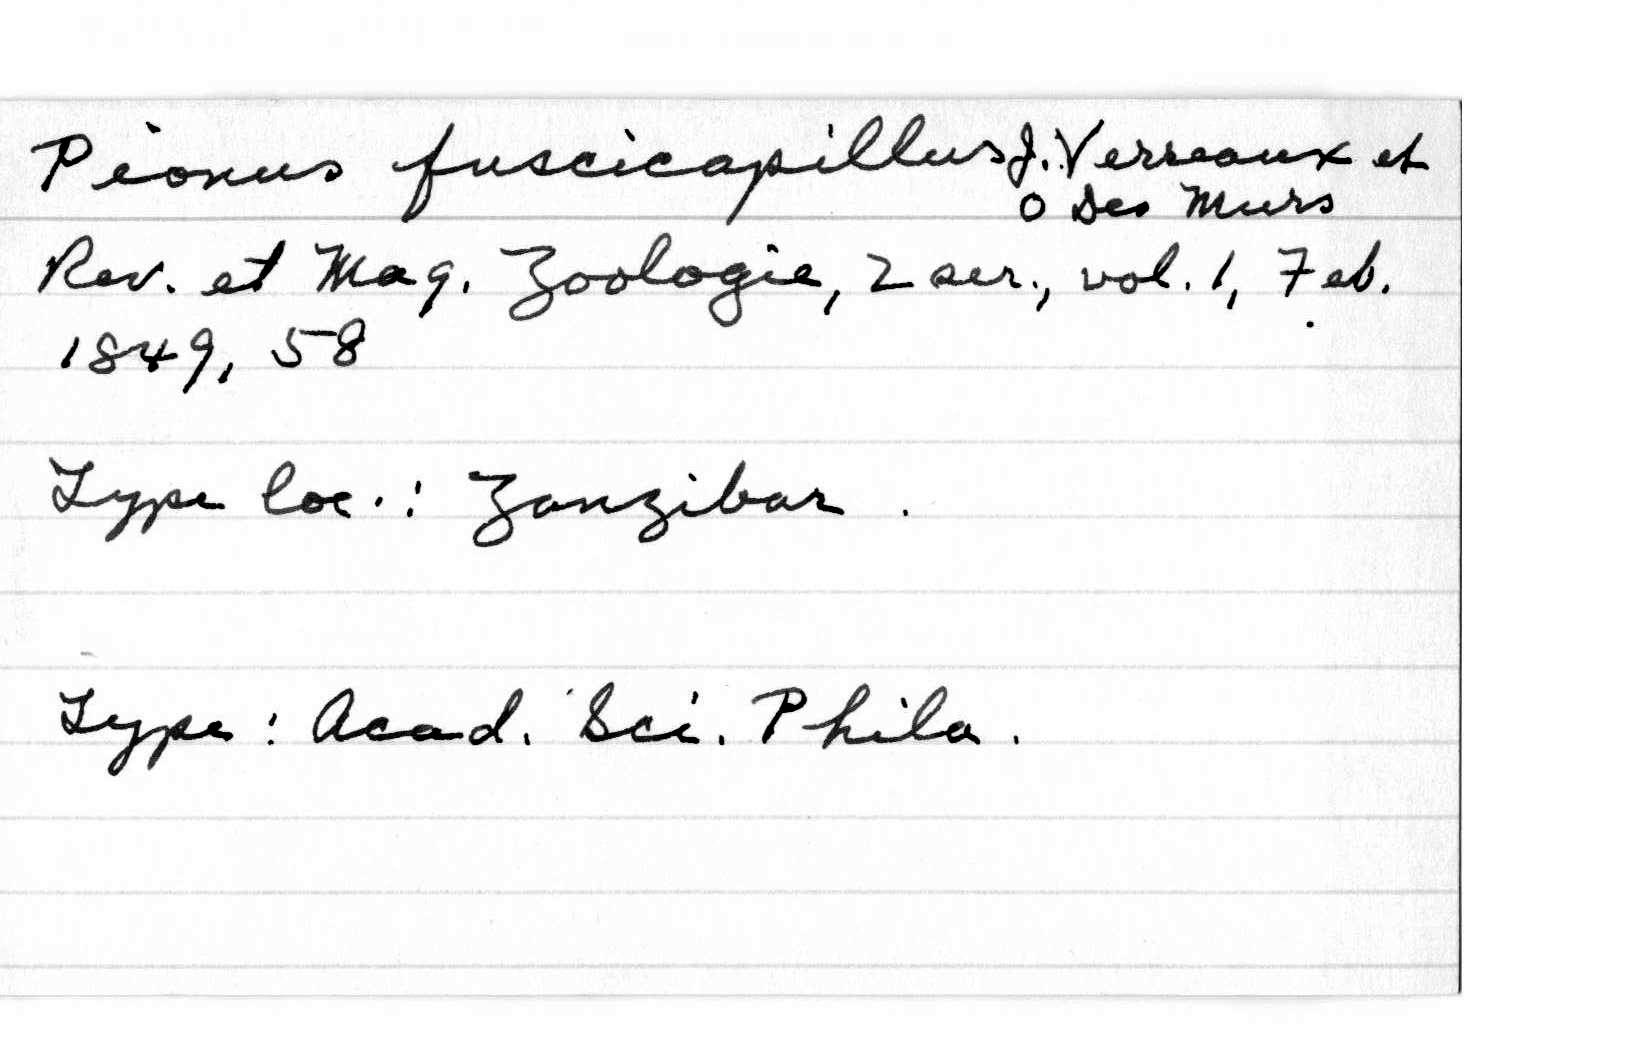 Pionus fuscicapillus J. Verreaux et
O Des Murs
Rev. et Mag. Zoologie, 2 ser., vol. 1, Feb.
1849, 58
Type loc.: Zanzibar.
Type: Acad. Sci. Phila.